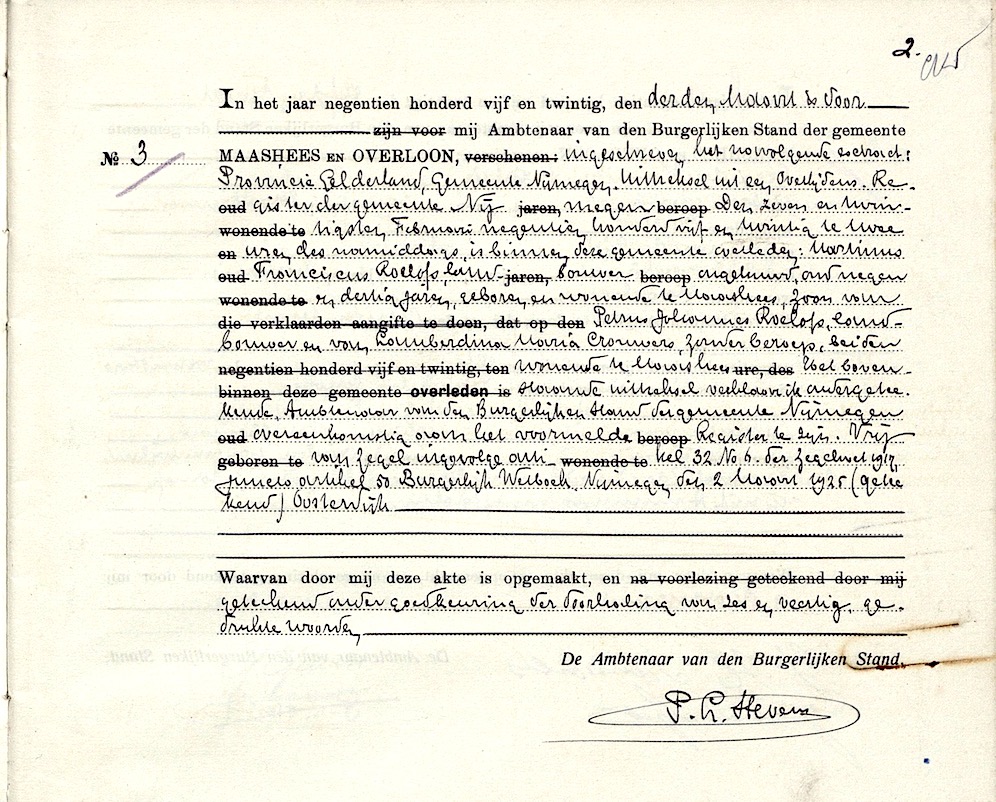 2.
In het jaar negentien honderd vijf en twintig, den derden Maart is door
zijn voor mij Ambtenaar van den Burgerlijken Stand der gemeente
No. 3 MAASHEES EN OVERLOON, verschenen: ingeschreven het navolgende extract:
Provincie Gelderland, Gemeente Nijmegen. Uittreksel uit een Overlijdens-Re-
oud gister der gemeente Nij jaren, megen beroep Den zeven en twin-
wonende te tigsten Februari negentien honderd vijf en twintig te twee
en uren des namiddags, is binnen deze gemeente overleden: Martinus
oud Franciscus Roelofs, land- jaren, bouwer beroep ongehuwd, oud negen
wonende te en dertig jaren, geboren en wonende te Maashees, zoon van
die verklaarden aangifte te doen, dat op den Petrus Johannes Roelofs, land-
bouwer en van Lamberdina Maria Crouwers, zonder beroep, beiden
negentien honderd vijf en twintig, ten wonende te Maashees ure, des Het boven-
binnen deze gemeente overleden is staande uittreksel verklaar ik ondergetee-
kende, Ambtenaar van den Burgerlijken Stand der gemeente Nijmegen
oud overeenkomstig aan het voormelde beroep Register te zijn. Vrij
geboren te van zegel ingevolge arti- wonende te kel 32 No 6. der Zegelwet 1917
juncto artikel 50 Burgerlijk Wetboek. Nijmegen den 2 Maart 1925 (getee-
kend) Oosterwijk
Waarvan door mij deze akte is opgemaakt, en na voorlezing geteekend door mij
geteekend onder goedkeuring der doorhaling van zes en veertig ge-
drukte woorden
De Ambtenaar van den Burgerlijken Stand.
P. H. Stevens